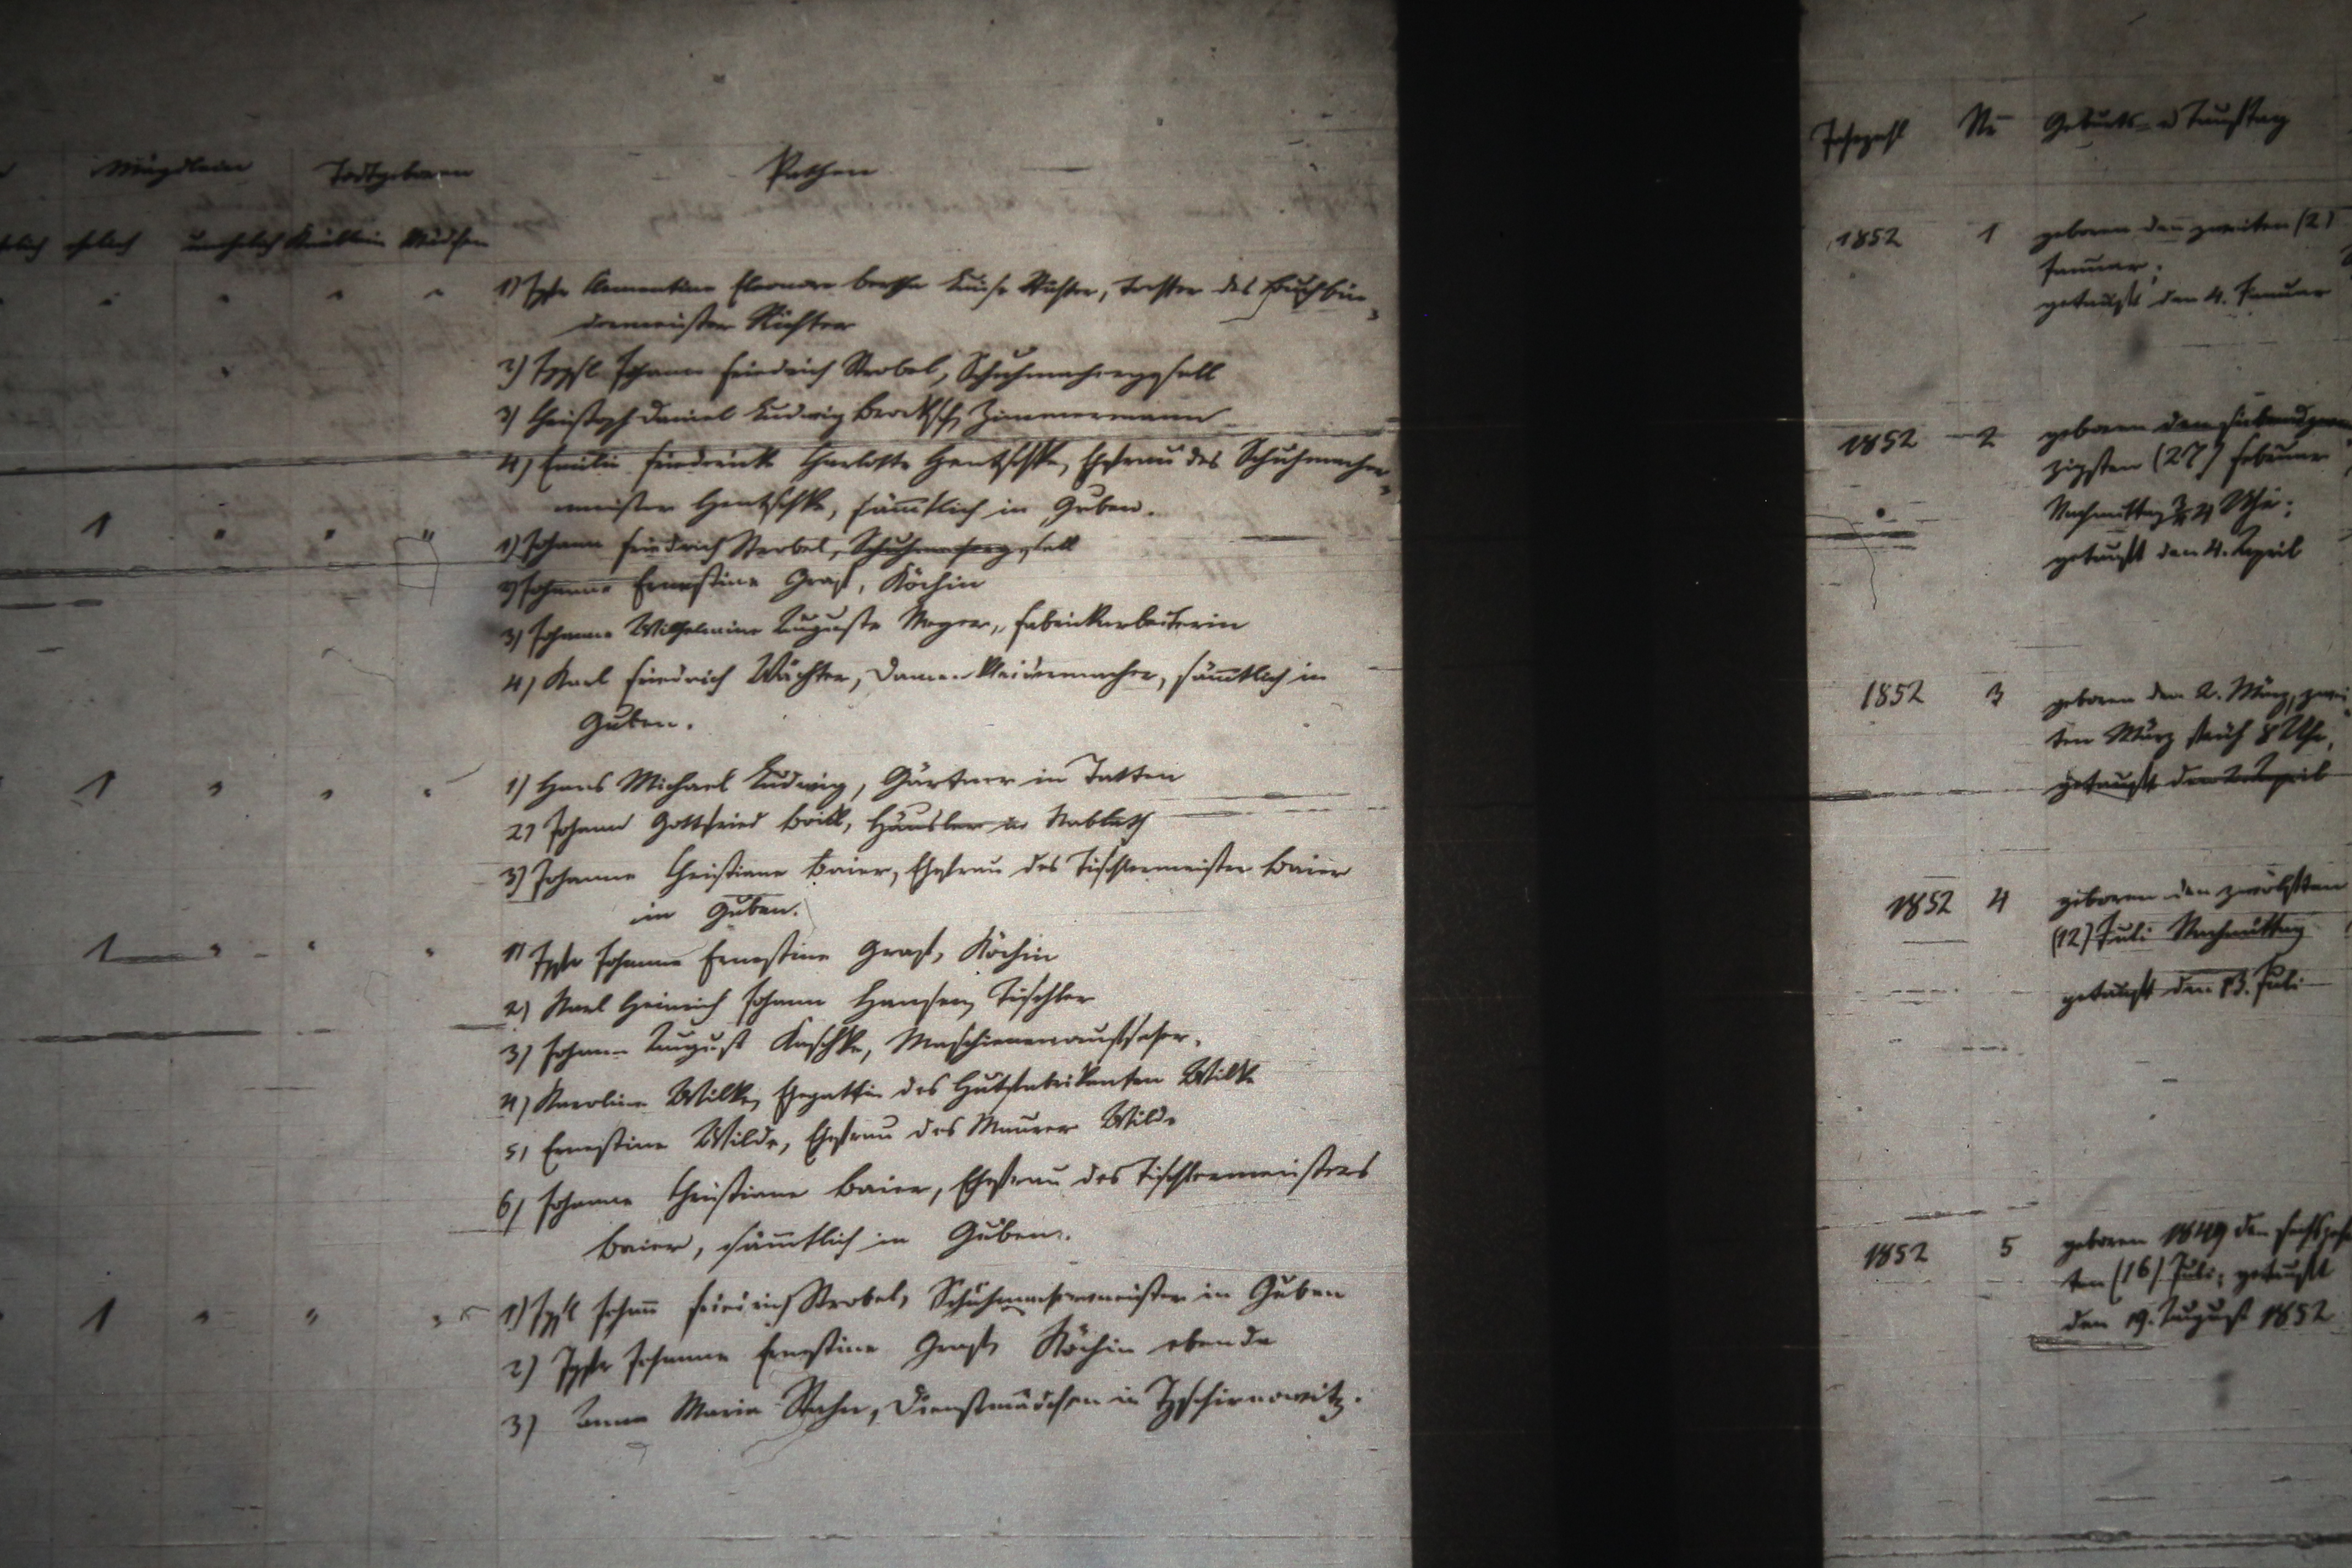 Mägdlein Todtgeboren Pathen
ehelich ehelich unehelich Knäblein Mädchen
1) Igfr Clementine Eleonore Bertha Luise Richter, Tochter des Buchbin-
dermeister Richter
2) Iggsl Johann Friedrich Strobel, Schuhmachergesell
3) Christoph Daniel Ludwig Zimmermann
4) Emilie Friedericke Charlotte Hentschke, Ehefrau des Schuhmacher-
meister Hentschke, sämtlich in Guben.
1 " " "
1) Johann Friedrich Strobel, Schuhmachergesell
2) Johanne Ernestine Graf, Köchin
3) Johanne Wilhelmine Auguste Meyer, Fabrickarbeiterin
4) Karl Friedrich Wächter, Damen-Kleidermacher, sämtlich in
Guben.
1 " " "
1) Hans Michael Ludwig, Gärtner in Tatten
2) Johann Gottfried Brill, Häusler in Nablath
3) Johanne Christiane Baier, Ehefrau des Tischlermeister Baier
in Guben.
1 " " "
1) Igfr Johanne Ernestine Graf, Köchin
2) Karl Heinrich Johann Hansen, Tischler
3) Johann August Kaschke, Maschienenaufseher,
4) Karoline Wilke, Ehegattin des Hutfabrikanten Wilke
5) Ernestine Wilde, Ehefrau des Maurer Wilde
6) Johanne Christiane Baier, Ehefrau des Tischlermeisters
Baier, sämtlich in Guben.
1 " " "
1) Iggsl Johann Friedrich Strobel, Schuhmachermeister in Guben
2) Igfr Johanne Ernestine Graf, Köchin ebenda
3) Anna Maria Rahn, Dienstmädchen in Tzschirnowitz.
Jahrzahl Nr Geburts- u Tauftag
1852 1 geboren den zweiten (2)
Januar;
getauft den 4. Januar
1852 2 geboren den siebenundzwan-
zigsten (27) Februar
Nachmittag 4 Uhr;
getauft den 4. April
1852 3 geboren den 2. März, zwei-
ten März früh 8 Uhr,
getauft den April
1852 4 geboren den zwölften
(12) Juli Nachmittag
getauft den 13. Juli
1852 5 geboren 1849 den sechszehn
ten (16) Juli; getauft
den 19. August 1852